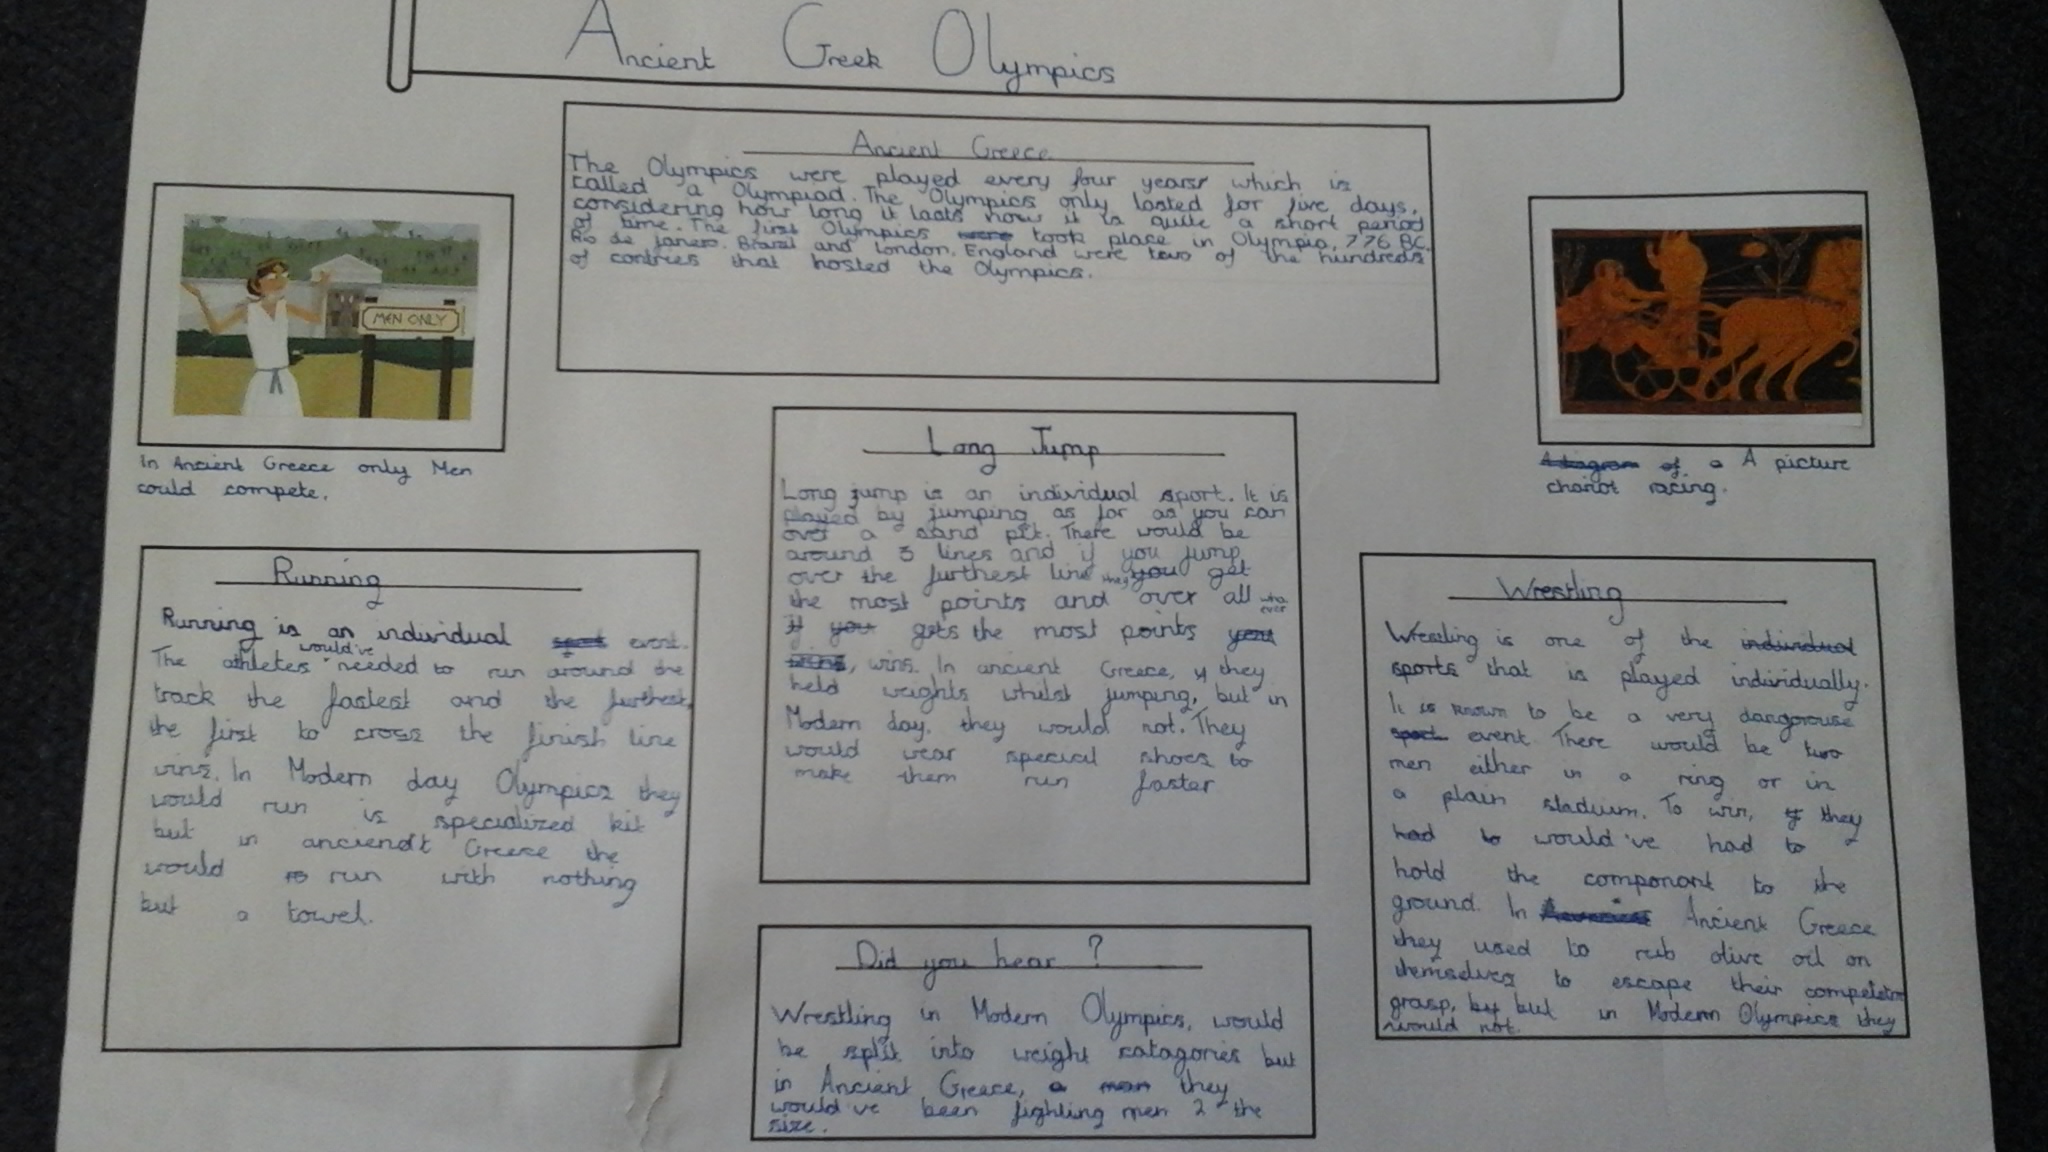 Ancient Greek Olympics
Ancient Greece
The Olympics were played every four years which is
called a Olympiad. The Olympics only lasted for five days,
considering how long it lasts now it is quite a short period
of time. The first Olympics were took place in Olympia, 776 BC.
Rio de janero, Brazil and London, England were two of the hundreds
of contries that hosted the Olympics.
MEN ONLY
In Ancient Greece only Men
could compete.
A diagram of a A picture
chariot racing.
Running
Running is an individual sport event.
would've
The athletes needed to run around the
track the fastest and the furthest,
the first to cross the finish line
wins. In Modern day Olympics they
would run is specialized kit
but in anciendt Greece the
would run with nothing
but a towel.
Long Jump
Long jump is an individual sport. It is
played by jumping as far as you can
over a sand pit. There would be
around 3 lines and if you jump
over the furthest line they you get
the most points and over all who ever
if you gets the most points your
wins, wins. In ancient Greece, they
held weights whilst jumping, but in
Modern day, they would not. They
would wear special shoes to
make them run faster
Wrestling
Wrestling is one of the individual
sports that is played individually.
It is known to be a very dangorouse
sport event. There would be two
men either in a ring or in
a plain stadium. To win, if they
had to would've had to
hold the componant to the
ground. In Ancient Greece
they used to rub olive oil on
themselves to escape their competetors
grasp, by but in Modern Olympics they
would not.
Did you hear ?
Wrestling in Modern Olympics, would
be split into weight catagories but
in Ancient Greece, a man they
would've been fighting men 2 the
size.